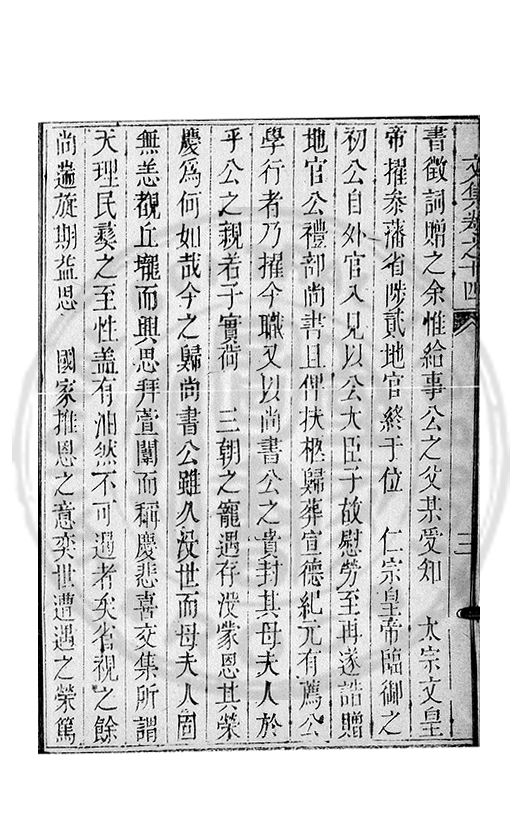 文集卷之十四
三
書徵詞贈之余惟給事公之父某受知 太宗文皇
帝擢泰藩省陟貳地官終于位 仁宗皇帝臨御之
初公自外官入見以公大臣子故慰勞至再遂誥贈
地官公禮部尚書且俾扶柩歸葬宣德紀元有薦公
學行者乃擢今職又以尚書公之貴封其母夫人於
乎公之親若子實荷 三朝之寵遇存沒蒙恩其榮
慶為何如哉今之歸尚書公雖久沒世而母夫人固
無恙覩丘壠而興思拜萱闈而稱慶悲喜交集所謂
天理民彞之至性蓋有油然不可遏者矣省視之餘
尚遄旋期益思 國家推恩之意奕世遭遇之榮篤